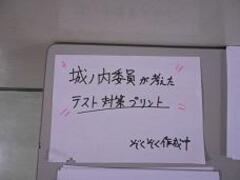 城ノ内委員が考えた
テスト対策プリント
ぞくぞく作成中